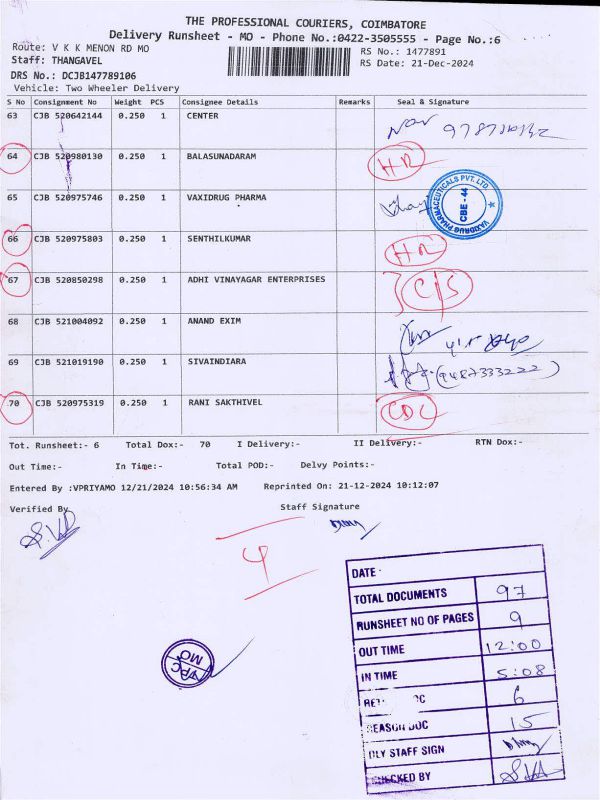 THE PROFESSIONAL COURIERS, COIMBATORE
Delivery Runsheet - MO - Phone No.:0422-3505555 - Page No.:6
Route: V K K MENON RD MO
RS No.: 1477891
Staff: THANGAVEL
RS Date: 21-Dec-2024
DRS No.: DCJB147789106
Vehicle: Two Wheeler Delivery
S No Consignment No Weight PCS Consignee Details Remarks Seal & Signature
63 CJB 520642144 0.250 1 CENTER
64 CJB 520980130 0.250 1 BALASUNADARAM HR
65 CJB 520975746 0.250 1 VAXIDRUG PHARMA
VAXIDRUG PHARMACEUTICALS PVT. LTD. CBE - 44
66 CJB 520975803 0.250 1 SENTHILKUMAR HR
67 CJB 520850298 0.250 1 ADHI VINAYAGAR ENTERPRISES C/S
68 CJB 521004092 0.250 1 ANAND EXIM
69 CJB 521019190 0.250 1 SIVAINDIARA (9487333222)
70 CJB 520975319 0.250 1 RANI SAKTHIVEL CDC
Tot. Runsheet:- 6 Total Dox:- 70 I Delivery:- II Delivery:- RTN Dox:-
Out Time:- In Time:- Total POD:- Delvy Points:-
Entered By :VPRIYAMO 12/21/2024 10:56:34 AM Reprinted On: 21-12-2024 10:12:07
Verified By Staff Signature
4
DATE
TOTAL DOCUMENTS 97
RUNSHEET NO OF PAGES 9
OUT TIME 12:00
IN TIME 5:08
6
REASON DOC 15
DLY STAFF SIGN
CHECKED BY
MO